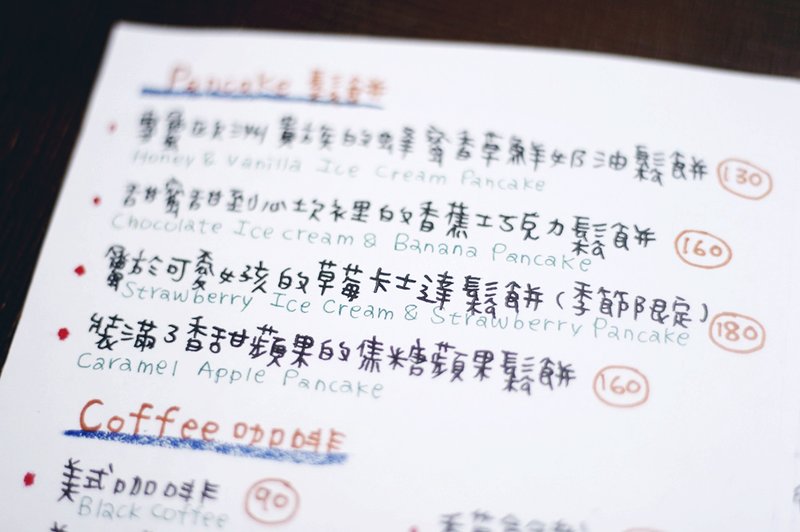 Pancake 鬆餅
歐洲貴族的蜂蜜香草鮮奶油鬆餅 130
Honey & Vanilla Ice Cream Pancake
甜蜜甜到心坎裡的香蕉巧克力鬆餅 160
Chocolate Ice cream & Banana Pancake
屬於可愛女孩的草莓卡士達鬆餅(季節限定) 180
Strawberry Ice Cream & Strawberry Pancake
裝滿了香甜蘋果的焦糖蘋果鬆餅 160
Caramel Apple Pancake
Coffee 咖啡
美式咖啡 90
Black Coffee